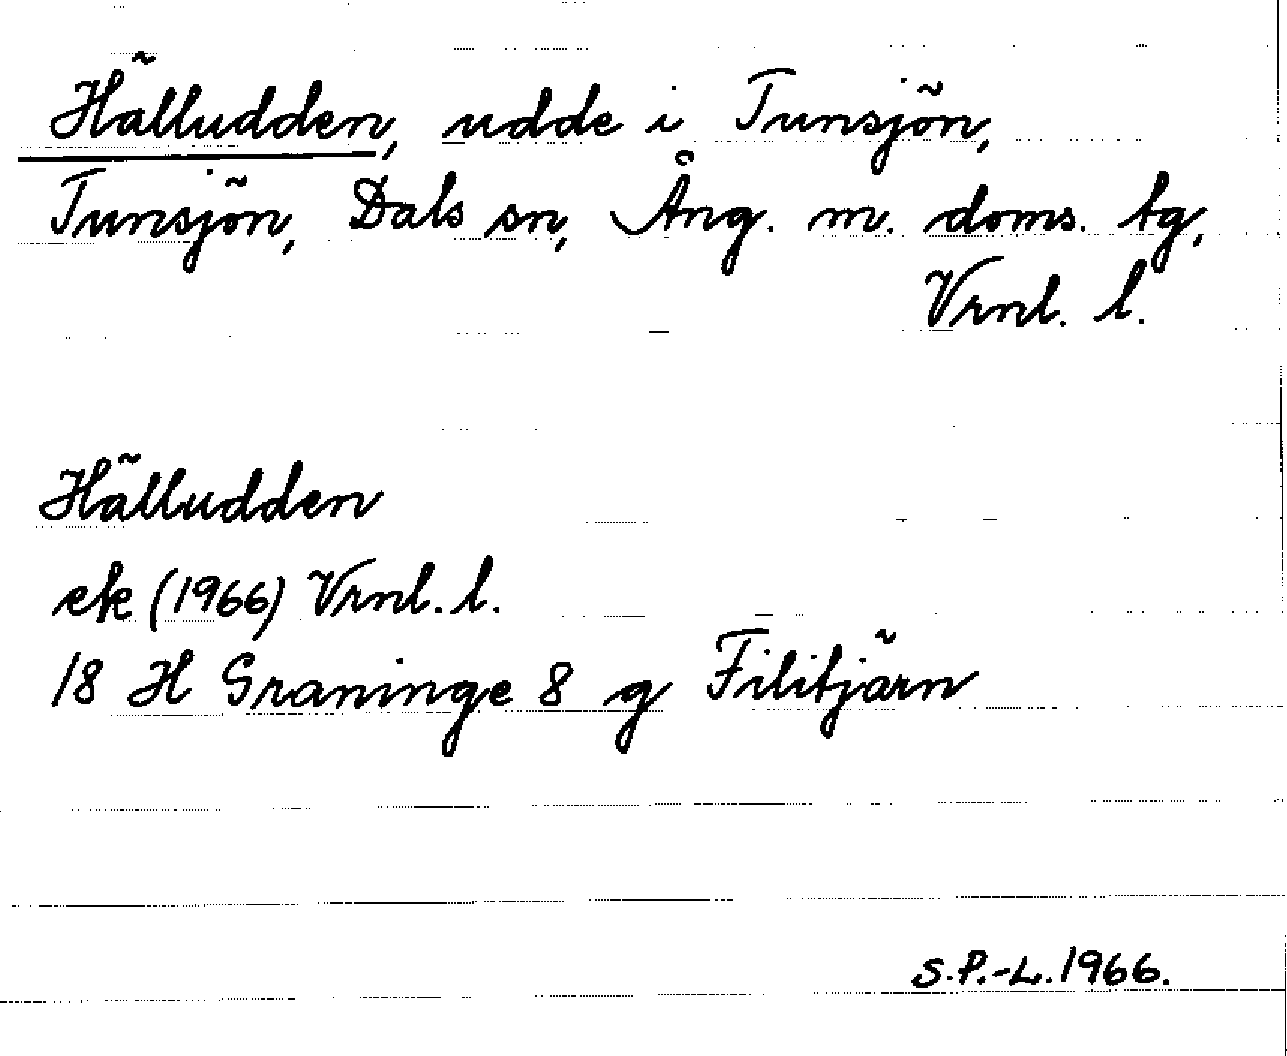 Hälludden, udde i Tunsjön,
Tunsjön, Dals sn, Ång. m. doms. tg,
Vrnl. l.
Hälludden
ek (1966) Vrnl. l.
18 H Graninge 8 g Filitjärn
S.P.-L. 1966.